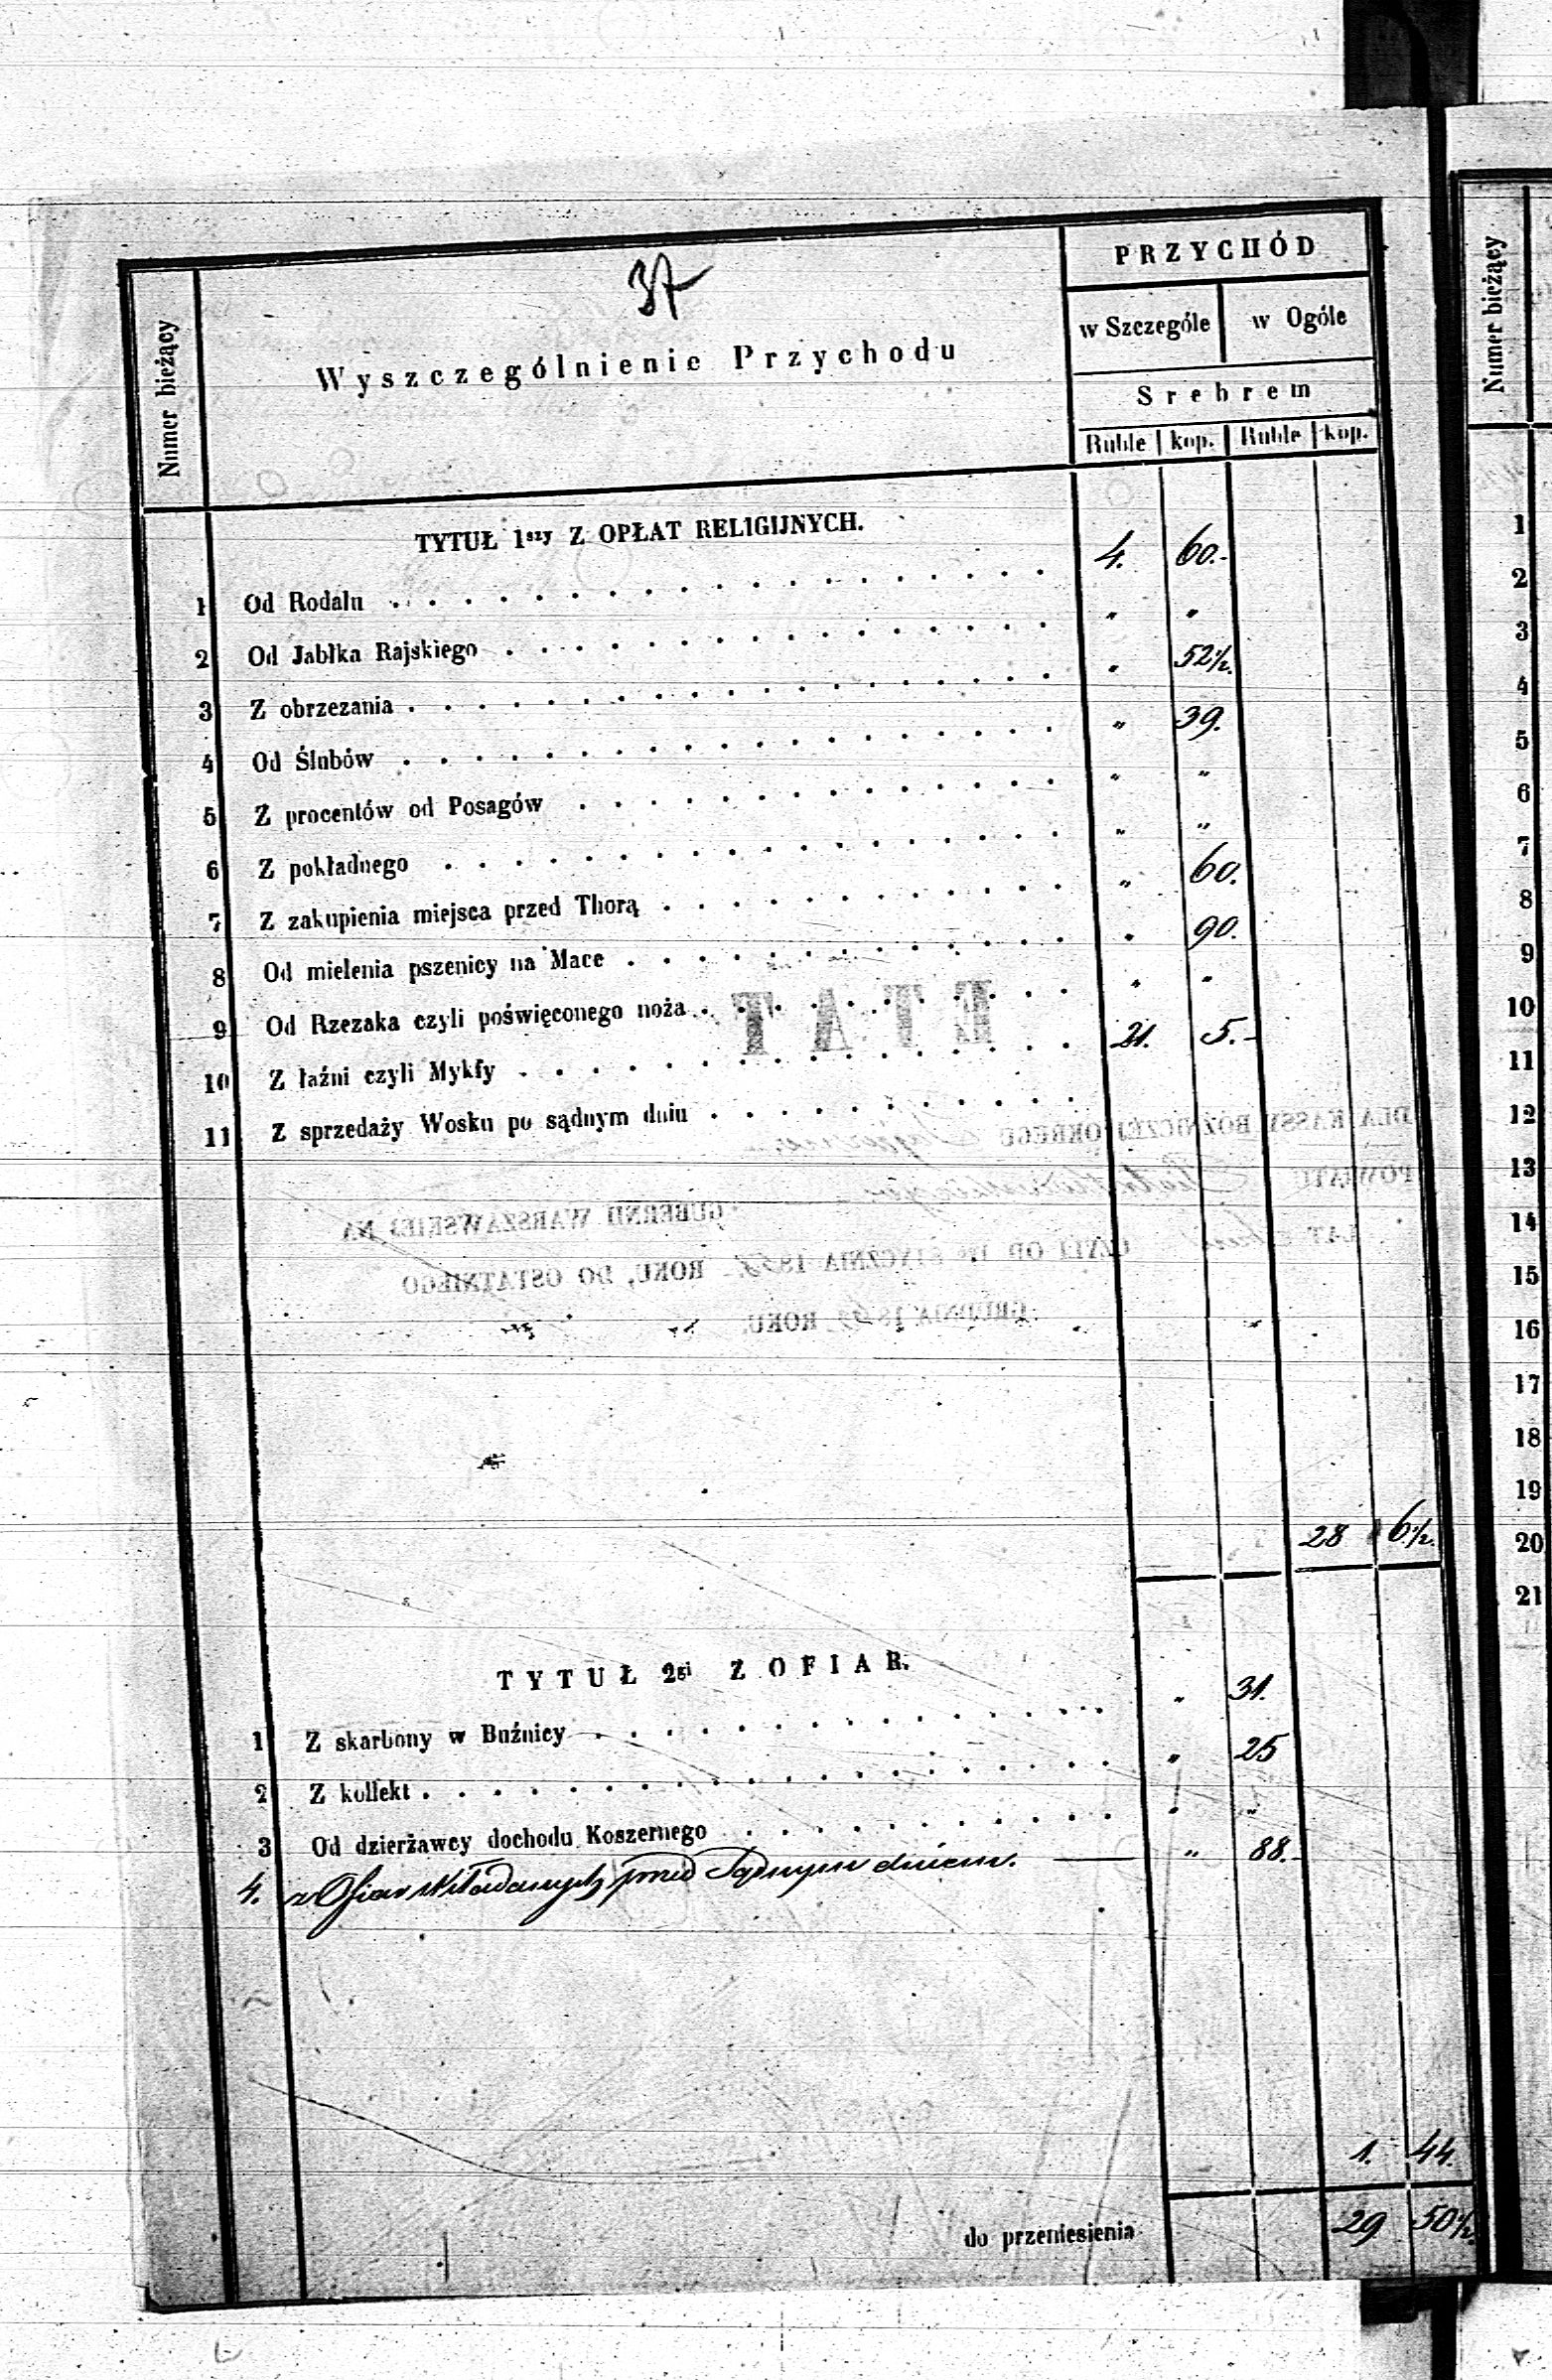 37
Numer bieżący
Wyszczególnienie Przychodu
PRZYCHÓD
w Szczególe w Ogóle
Srebrem
Ruble kop. Ruble kop.
TYTUŁ 1szy Z OPŁAT RELIGIJNYCH.
1 Od Rodału . . . 4. 60.-
2 Od Jabłka Rajskiego . . . " "
3 Z obrzezania . . . " 52½.
4 Od Ślubów . . . " 39.
5 Z procentów od Posagów . . . " "
6 Z pokładnego . . . " "
7 Z zakupienia miejsca przed Thorą . . . " 60.
8 Od mielenia pszenicy na Mace . . . " 90.
9 Od Rzezaka czyli poświęconego noża . . . " "
10 Z łaźni czyli Mykfy . . . 21. 5.-
11 Z sprzedaży Wosku po sądnym dniu . . .
28 6½.
TYTUŁ 2gi Z OFIAR.
1 Z skarbony w Bużnicy . . . " 31.
2 Z kollekt . . . " 25
3 Od dzierżawcy dochodu Koszernego . . . " "
4. z Ofiar składanych przed Sądnym dniem. — " 88.-
1. 44.
do przeniesienia 29 50½.
Numer bieżący
1
2
3
4
5
6
7
8
9
10
11
12
13
14
15
16
17
18
19
20
21